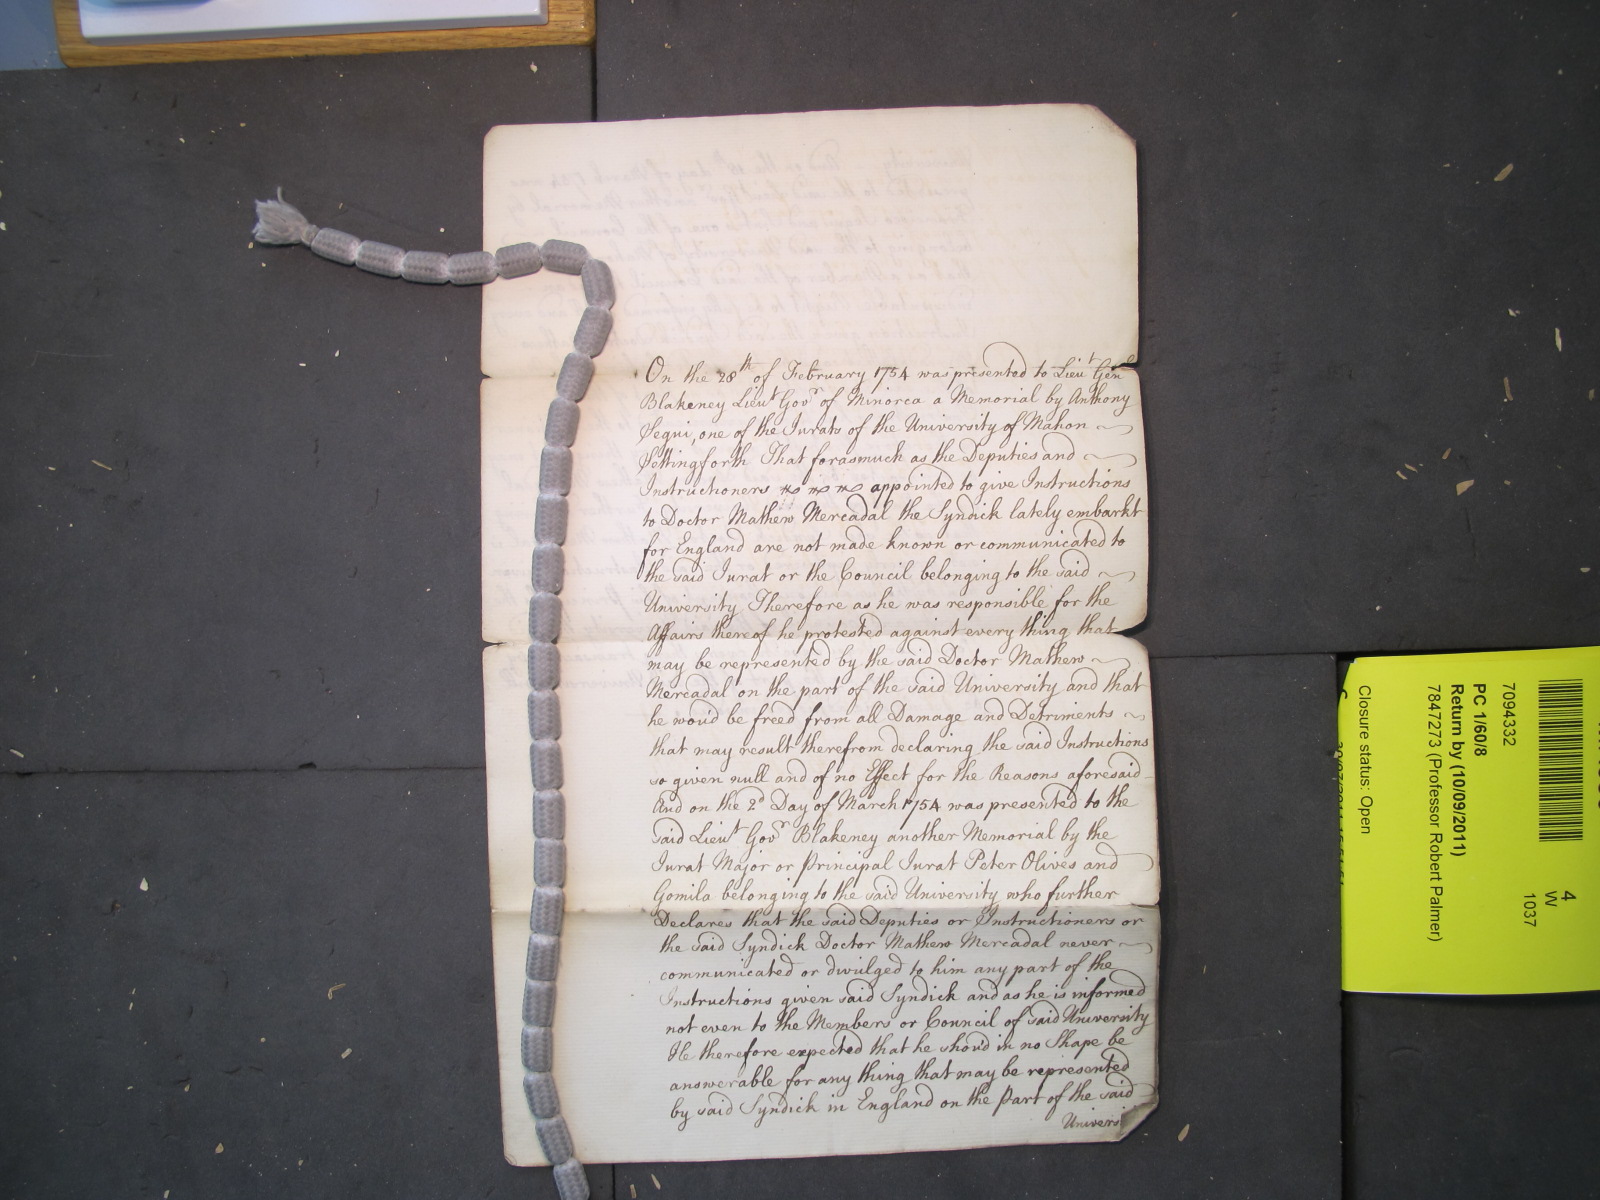 On the 28th of February 1754 was presented to Lieut Genl
Blakeney Lieut Govr of Minorca a Memorial by Anthony
Segui, one of the Jurats of the University of Mahon
Setting forth That forasmuch as the Deputies and
Instructioners appointed to give Instructions
to Doctor Mathew Mercadal the Syndick lately embarkt
for England are not made known or communicated to
the said Jurat or the Council belonging to the said
University Therefore as he was responsible for the
Affairs thereof he protested against every thing that
may be represented by the said Doctor Mathew
Mercadal on the part of the said University and that
he wou'd be freed from all Damage and Detriments
that may result therefrom declaring the said Instructions
so given null and of no Effect for the Reasons aforesaid
And on the 2d Day of March 1754 was presented to the
said Lieut Govr Blakeney another Memorial by the
Jurat Major or Principal Jurat Peter Olives and
Gomila belonging to the said University who further
Declares that the said Deputies or Instructioners or
the said Syndick Doctor Mathew Mercadal never
communicated or divulged to him any part of the
Instructions given said Syndick and as he is informed
not even to the Members or Council of said University
He therefore expected that he shou'd in no Shape be
answerable for any thing that may be represented
by said Syndick in England on the Part of the said
Universi
4
W
1037
7094332
PC 1/60/8
Return by (10/09/2011)
7847273 (Professor Robert Palmer)
Closure status: Open